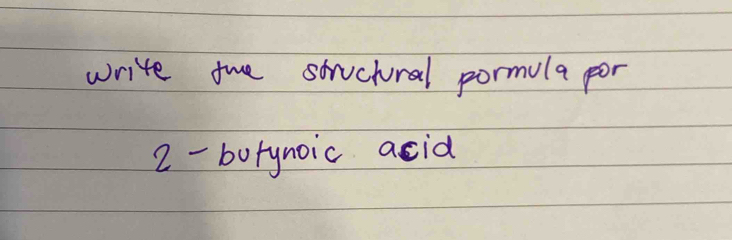 write the structural formula for
2-butynoic acid